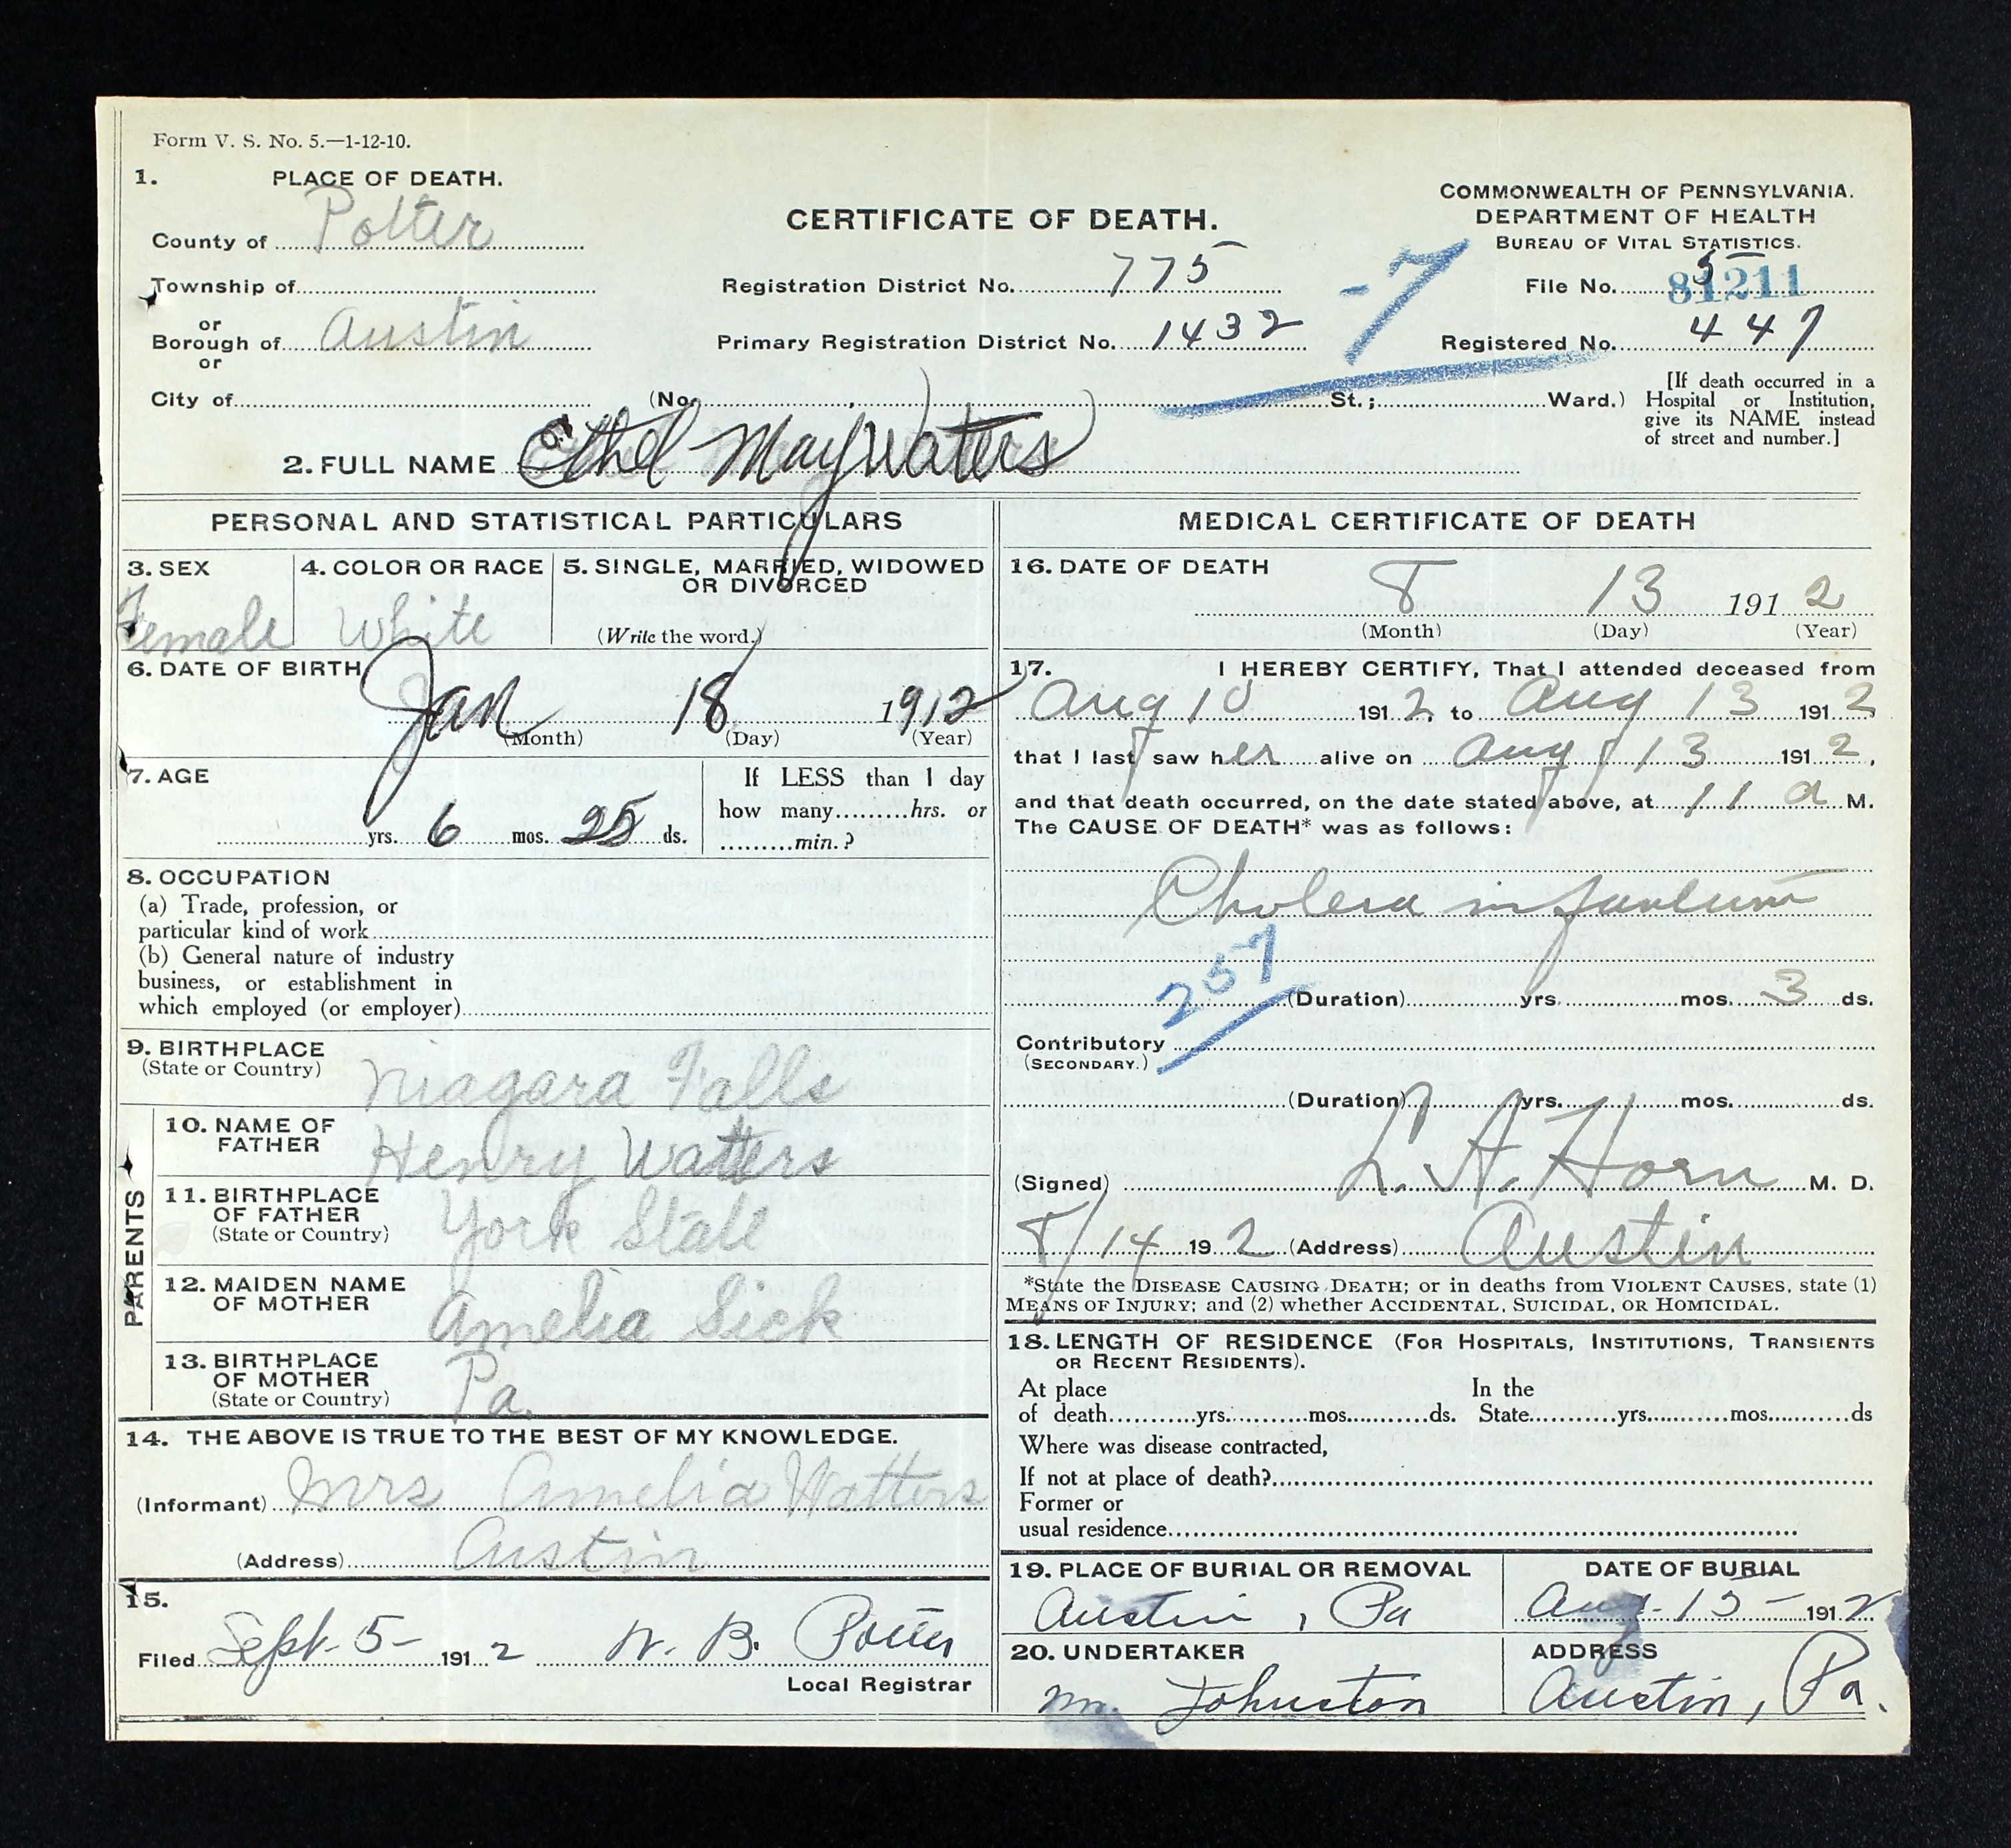 Form V. S. No. 5.—1-12-10.
1. PLACE OF DEATH.
County of Potter
Township of
or
Borough of Austin
or
City of
CERTIFICATE OF DEATH.
Registration District No. 775
Primary Registration District No. 1432
(No. , St.; Ward.)
COMMONWEALTH OF PENNSYLVANIA.
DEPARTMENT OF HEALTH
BUREAU OF VITAL STATISTICS.
File No. 5 81211
Registered No. 447
-7
[If death occurred in a
Hospital or Institution,
give its NAME instead
of street and number.]
2. FULL NAME Ethel May Waters
PERSONAL AND STATISTICAL PARTICULARS
3. SEX
Female
4. COLOR OR RACE
White
5. SINGLE, MARRIED, WIDOWED
OR DIVORCED
(Write the word.)
6. DATE OF BIRTH
Jan 18 1912
(Month) (Day) (Year)
7. AGE
yrs. 6 mos. 25 ds.
If LESS than 1 day
how many hrs. or
min.?
8. OCCUPATION
(a) Trade, profession, or
particular kind of work
(b) General nature of industry
business, or establishment in
which employed (or employer)
9. BIRTHPLACE
(State or Country) Niagara Falls
PARENTS
10. NAME OF
FATHER Henry Watters
11. BIRTHPLACE
OF FATHER
(State or Country) York State
12. MAIDEN NAME
OF MOTHER Amelia Sick
13. BIRTHPLACE
OF MOTHER
(State or Country) Pa.
14. THE ABOVE IS TRUE TO THE BEST OF MY KNOWLEDGE.
(Informant) Mrs Amelia Watters
(Address) Austin
15.
Filed Sept. 5- 1912 W. B. Potter
Local Registrar
MEDICAL CERTIFICATE OF DEATH
16. DATE OF DEATH
8 13 1912
(Month) (Day) (Year)
17. I HEREBY CERTIFY, That I attended deceased from
Aug 10 1912, to Aug 13 1912
that I last saw her alive on Aug 13 1912,
and that death occurred, on the date stated above, at 11 a M.
The CAUSE OF DEATH* was as follows:
Cholera infantum
257
(Duration) yrs. mos. 3 ds.
Contributory
(SECONDARY.)
(Duration) yrs. mos. ds.
(Signed) L. A. Horn M. D.
8/14 192 (Address) Austin
*State the DISEASE CAUSING DEATH; or in deaths from VIOLENT CAUSES, state (1)
MEANS OF INJURY; and (2) whether ACCIDENTAL, SUICIDAL, OR HOMICIDAL.
18. LENGTH OF RESIDENCE (FOR HOSPITALS, INSTITUTIONS, TRANSIENTS
OR RECENT RESIDENTS).
At place In the
of death yrs. mos. ds. State yrs. mos. ds
Where was disease contracted,
If not at place of death?
Former or
usual residence
19. PLACE OF BURIAL OR REMOVAL
Austin, Pa
DATE OF BURIAL
Aug. 15- 1912
20. UNDERTAKER
Johnston
ADDRESS
Austin, Pa.